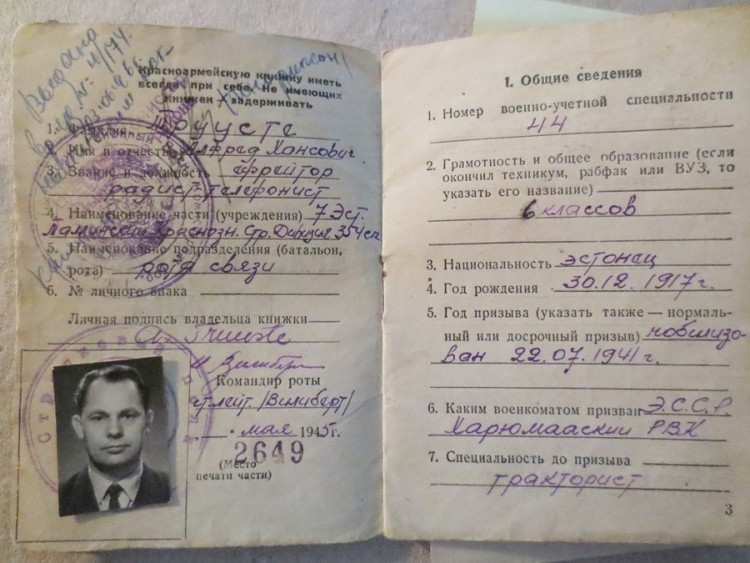 Выдано
Красноармейскую книжку иметь
всегда при себе. Не имеющих
книжек задерживать
1. Фамилия Труусте
2. Имя и отчество Алфред Хансович
3. Звание и должность ефрейтор
радист-телефонист
4. Наименование части (учреждения) 7 Эст.
Таллинский Краснозн. Стр. Дивизия 354 сп
5. Наименование подразделения (батальон,
рота) рота связи
6. № личного знака
Личная подпись владельца книжки
Командир роты
ст. лейт. /Вилиберт/
май 1945г.
2649
(Место
печати части)
I. Общие сведения
1. Номер военно-учетной специальности
44
2. Грамотность и общее образование (если
окончил техникум, рабфак или ВУЗ, то
указать его название)
6 классов
3. Национальность эстонец
4. Год рождения 30.12.1917г.
5. Год призыва (указать также — нормаль-
ный или досрочный призыв) мобилизо-
ван 22.07.1941г.
6. Каким военкоматом призван Э.С.С.Р.
Харюмааский РВК
7. Специальность до призыва
тракторист
3